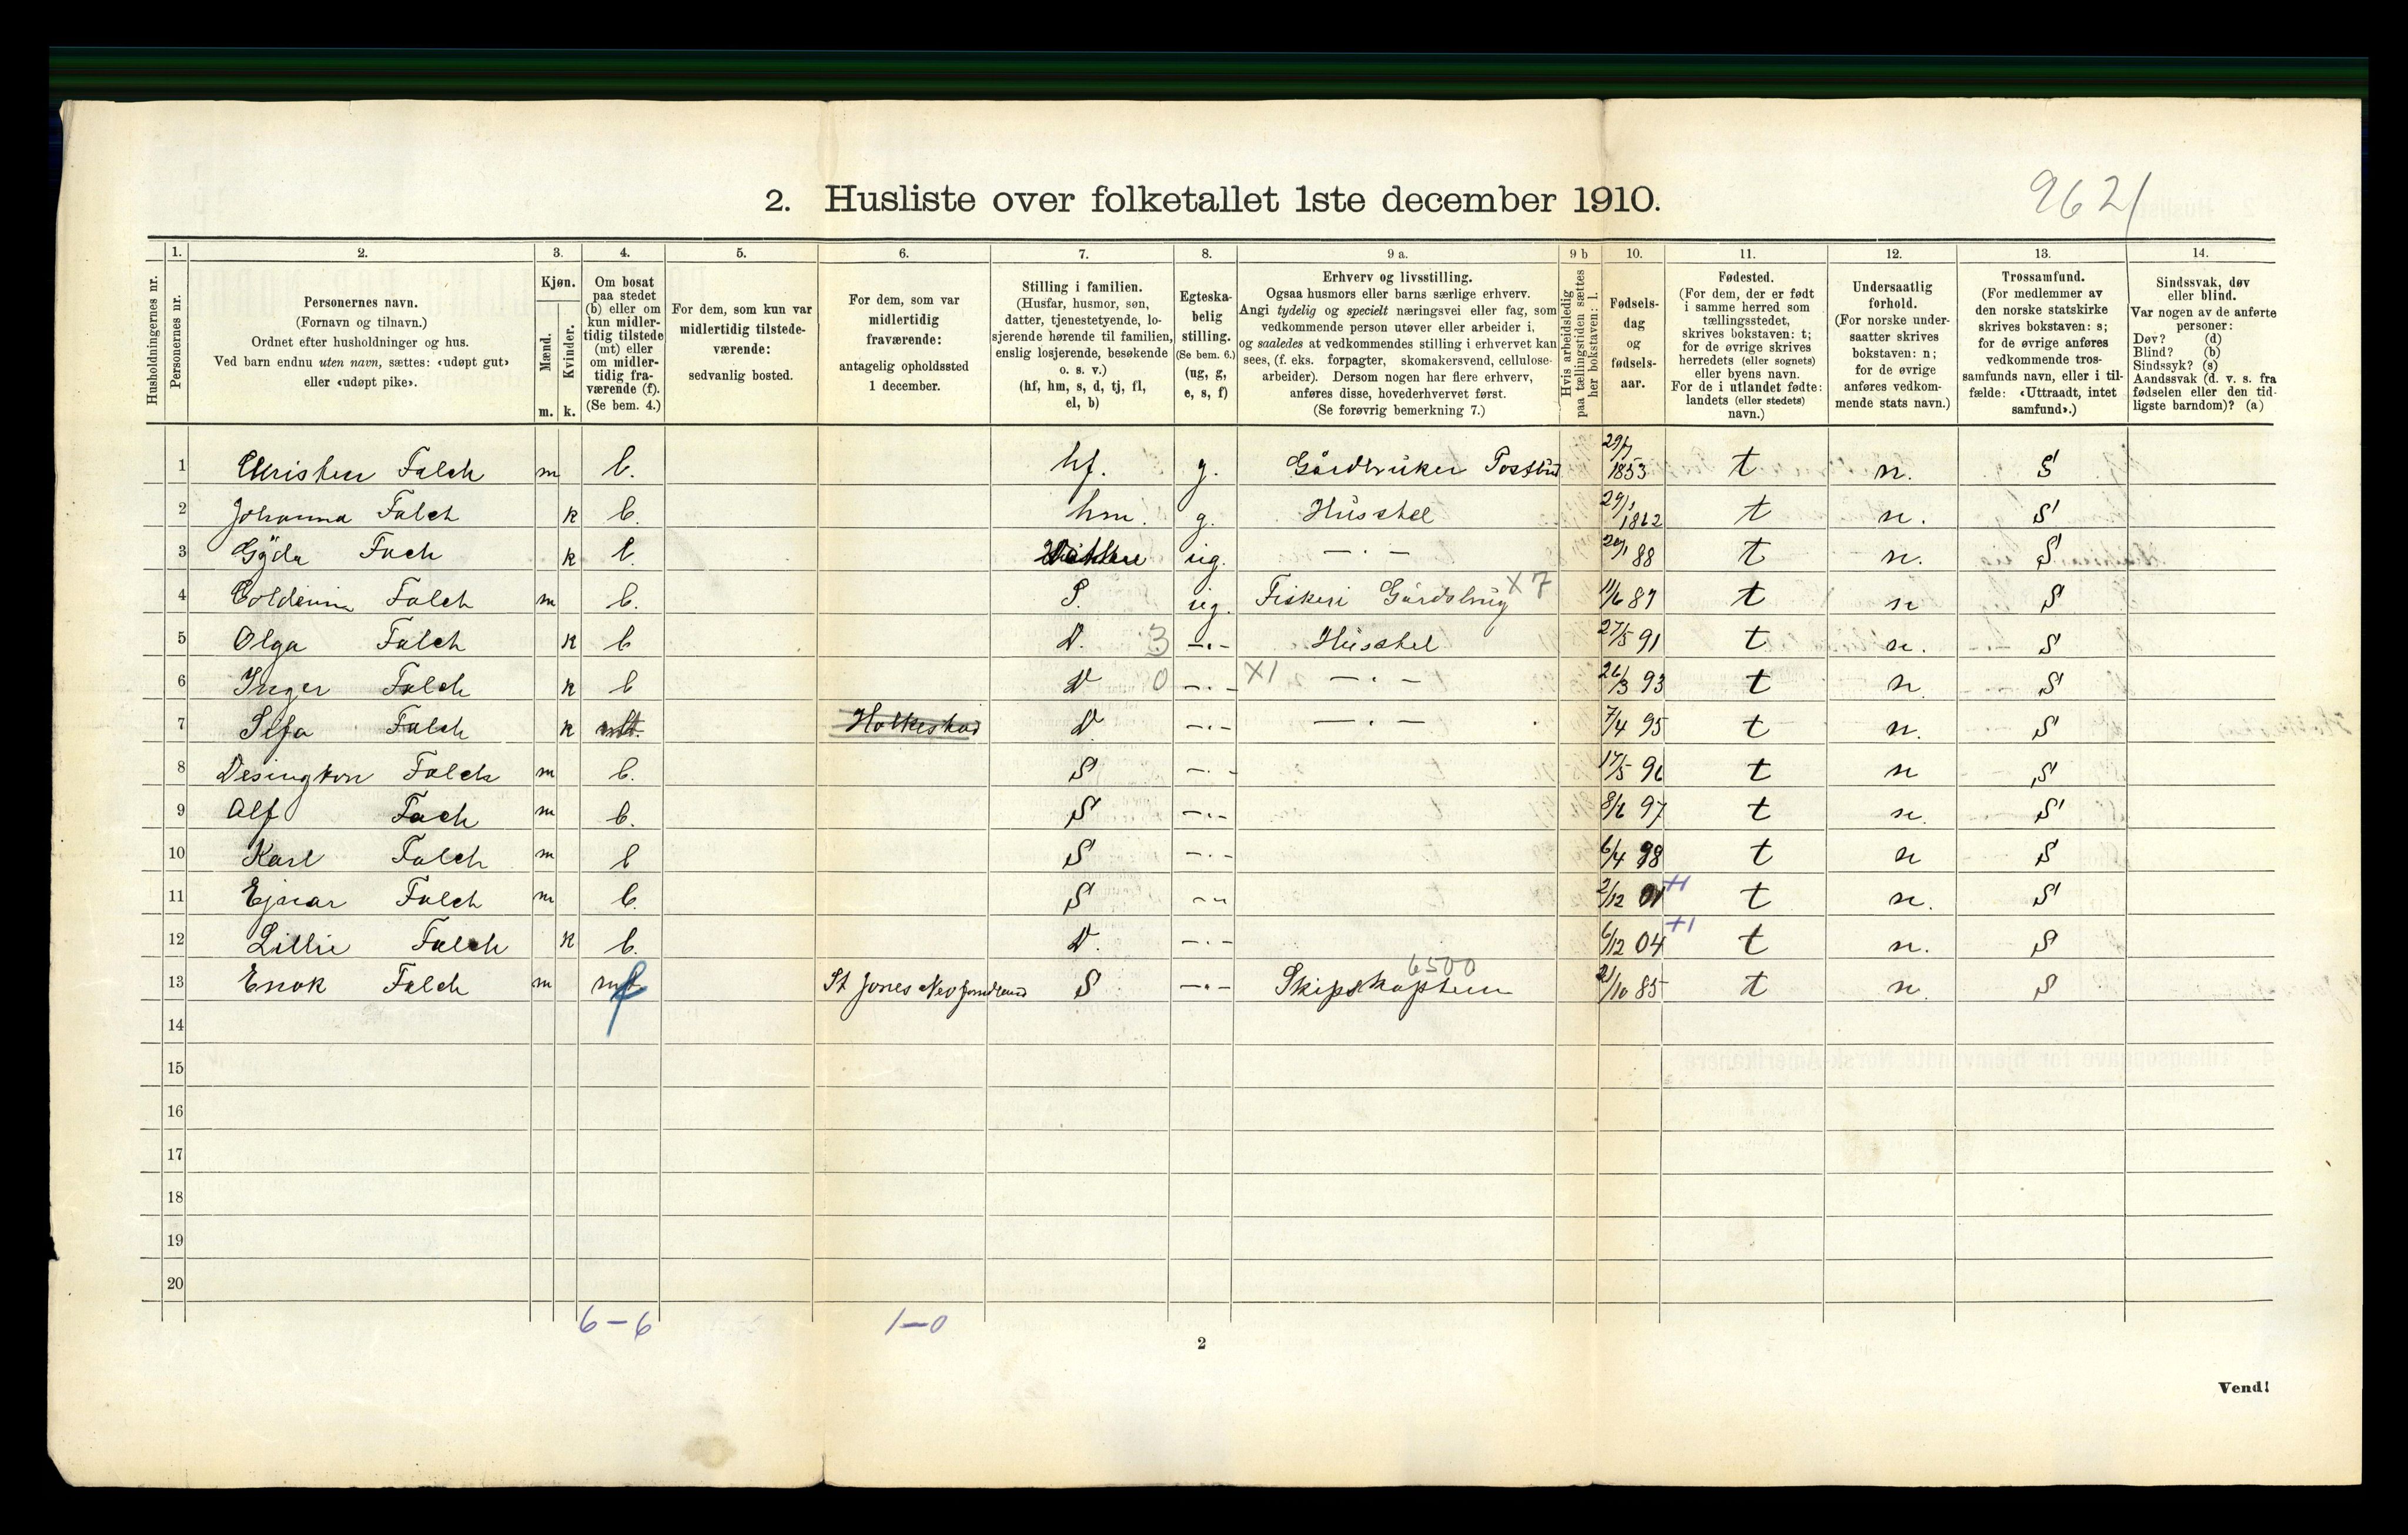 2. Husliste over folketallet 1ste december 1910.
9621
1. 2. 3. 4. 5. 6. 7. 8. 9 a. 9 b 10. 11. 12. 13. 14.
Husholdningernes nr.
Personernes nr.
Personernes navn.
(Fornavn og tilnavn.)
Ordnet efter husholdninger og hus.
Ved barn endnu uten navn, sættes: «udøpt gut»
eller «udøpt pike».
Kjøn.
Mænd.
Kvinder.
m. k.
Om bosat
paa stedet
(b) eller om
kun midler-
tidig tilstede
(mt) eller
om midler-
tidig fra-
værende (f).
(Se bem. 4.)
For dem, som kun var
midlertidig tilstede-
værende:
sedvanlig bosted.
For dem, som var
midlertidig
fraværende:
antagelig opholdssted
1 december.
Stilling i familien.
(Husfar, husmor, søn,
datter, tjenestetyende, lo-
sjerende hørende til familien,
enslig losjerende, besøkende
o. s. v.)
(hf, hm, s, d, tj, fl,
el, b)
Egteska-
belig
stilling.
(Se bem. 6.)
(ug, g,
e, s, f)
Erhverv og livsstilling.
Ogsaa husmors eller barns særlige erhverv.
Angi tydelig og specielt næringsvei eller fag, som
vedkommende person utøver eller arbeider i,
og saaledes at vedkommendes stilling i erhvervet kan
sees, (f. eks. forpagter, skomakersvend, cellulose-
arbeider). Dersom nogen har flere erhverv,
anføres disse, hovederhvervet først.
(Se forøvrig bemerkning 7.)
Hvis arbeidsledig
paa tællingstiden sættes
her bokstaven: l.
Fødsels-
dag
og
fødsels-
aar.
Fødested.
(For dem, der er født
i samme herred som
tællingsstedet,
skrives bokstaven: t;
for de øvrige skrives
herredets (eller sognets)
eller byens navn.
For de i utlandet fødte:
landets (eller stedets)
navn.)
Undersaatlig
forhold.
(For norske under-
saatter skrives
bokstaven: n;
for de øvrige
anføres vedkom-
mende stats navn.)
Trossamfund.
(For medlemmer av
den norske statskirke
skrives bokstaven: s;
for de øvrige anføres
vedkommende tros-
samfunds navn, eller i til-
fælde: «Uttraadt, intet
samfund».)
Sindssvak, døv
eller blind.
Var nogen av de anførte
personer:
Døv? (d)
Blind? (b)
Sindssyk? (s)
Aandssvak (d. v. s. fra
fødselen eller den tid-
ligste barndom)? (a)
1 Christen Falch m b. hf. g. Gårdbruker Postbud 1853 t n. S
2 Johanna Falch k b. hm. g. Husstel 29/1 1862 t n. S
3 Gÿda Fach k b. ug. —·— 88 t n. S
4 Falch m b. S. ug. Fiskeri Gårdsbrug X7 11/6 87 t n S
5 Olga Falch k b D. 3 —·— Husstel 27/5 91 t n. S
6 Inger Falch k b D 0 —·— X1 —·— 26/3 93 t n. S
7 Falch k Holkestad D —·— —·— 7/4 95 t n. S
8 Falch m b. S —·— 17/5 96 t n S
9 Alf Fach m b. S —·— 8/6 97 t n. S
10 Karl Falch m b S —·— 6/4 98 t n S
11 Ejnar Falch m b. S —·— 2/12 01 +1 t n. S
12 Lillie Falch k b. D. —·— 6/12 04 +1 t n. S
13 Enok Falch m f St Jones Neo Jondland S —·— Skipskaptein 6500 21/10 85 t n. S
14
15
16
17
18
19
20
6—6 1—0
2
Vend!